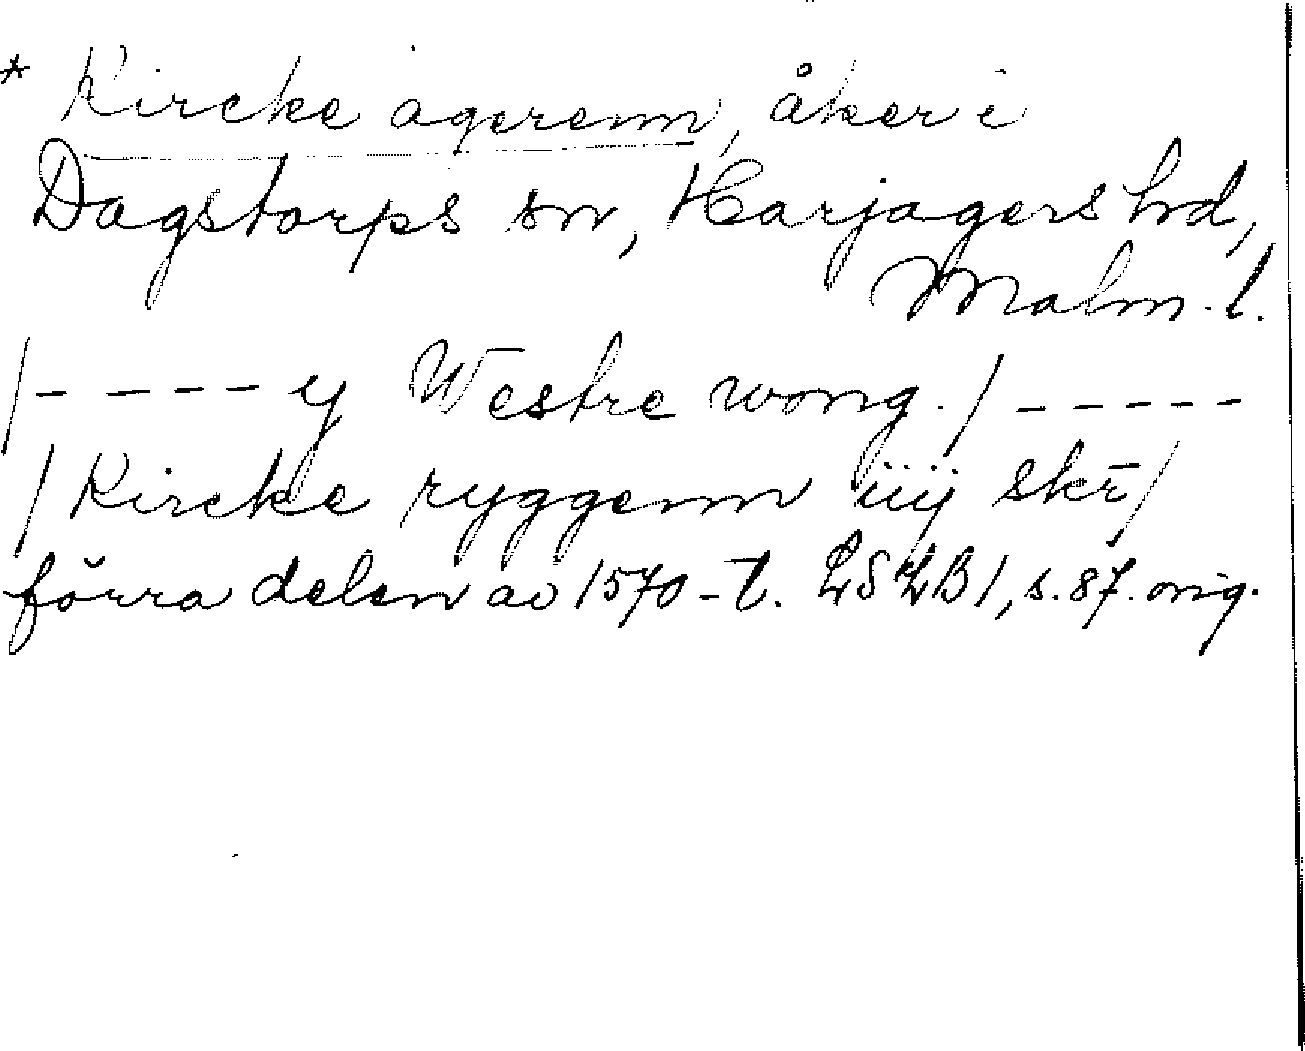 * Kircke agerenn, åker i
Dagstorps sn, Harjagers hd,
Malm. l.
/- - - - - y Westre wong. / - - - - -
/ Kircke ryggenn iiij skr̄ /
förra delen av 1570-t. LSLB 1, s. 87. orig.